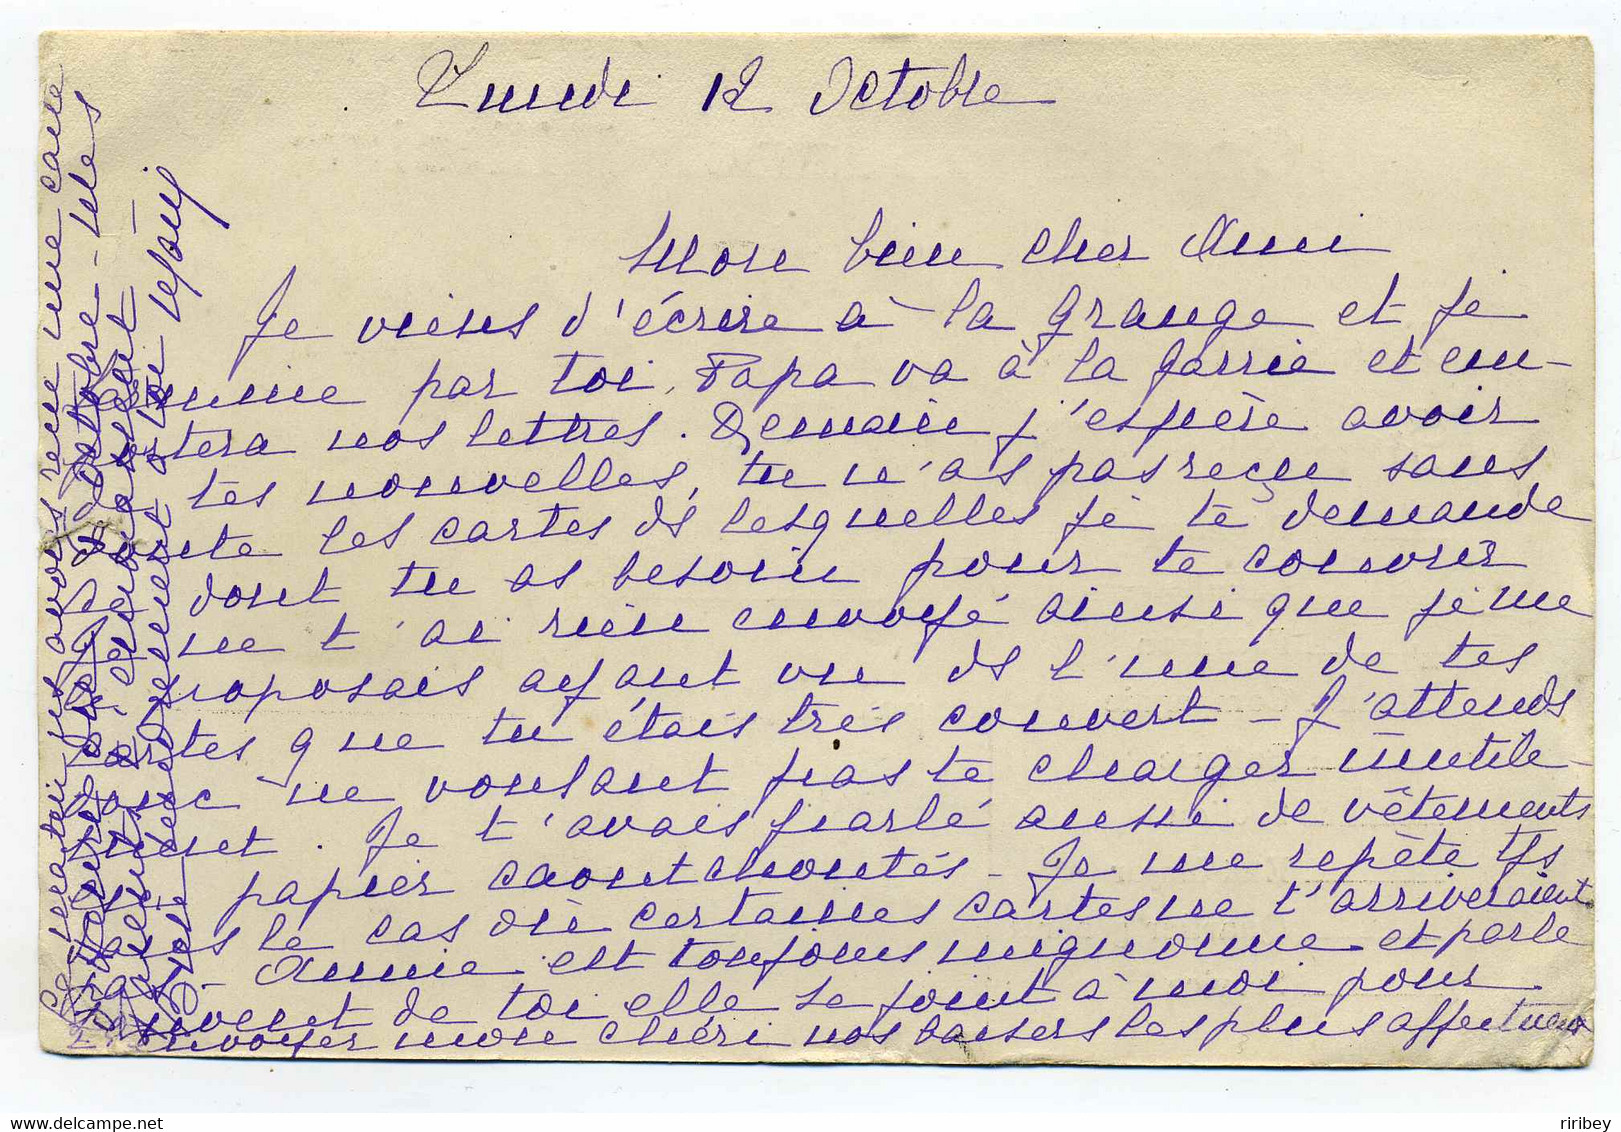 Lundi 12 Octobre
Mon bien cher Ami
Je viens d'écrire à la Grange et je
termine par toi. Papa va à la Jarrie et em-
portera nos lettres. Demain j'espère avoir
tes nouvelles, tu n'as pas reçu sans
doute les cartes de lesquelles je te demande
dont tu as besoin pour te couvrir
Je ne t'ai rien envoyé ainsi que je me
proposais ayant vu ds l'une de tes
cartes que tu étais très couvert - J'attends
donc ne voulant pas te charger inutile-
ment. Je t'avais parlé aussi de vêtements
en papier caoutchoutés - Je me repète tjs
dans le cas où certaines cartes ne t'arriveraient
- Annie est toujours mignonne et parle
souvent de toi elle se joint à moi pour
envoyer mon chéri nos baisers les plus affectueux
Ce matin ns avons reçu une carte
Octobre - les